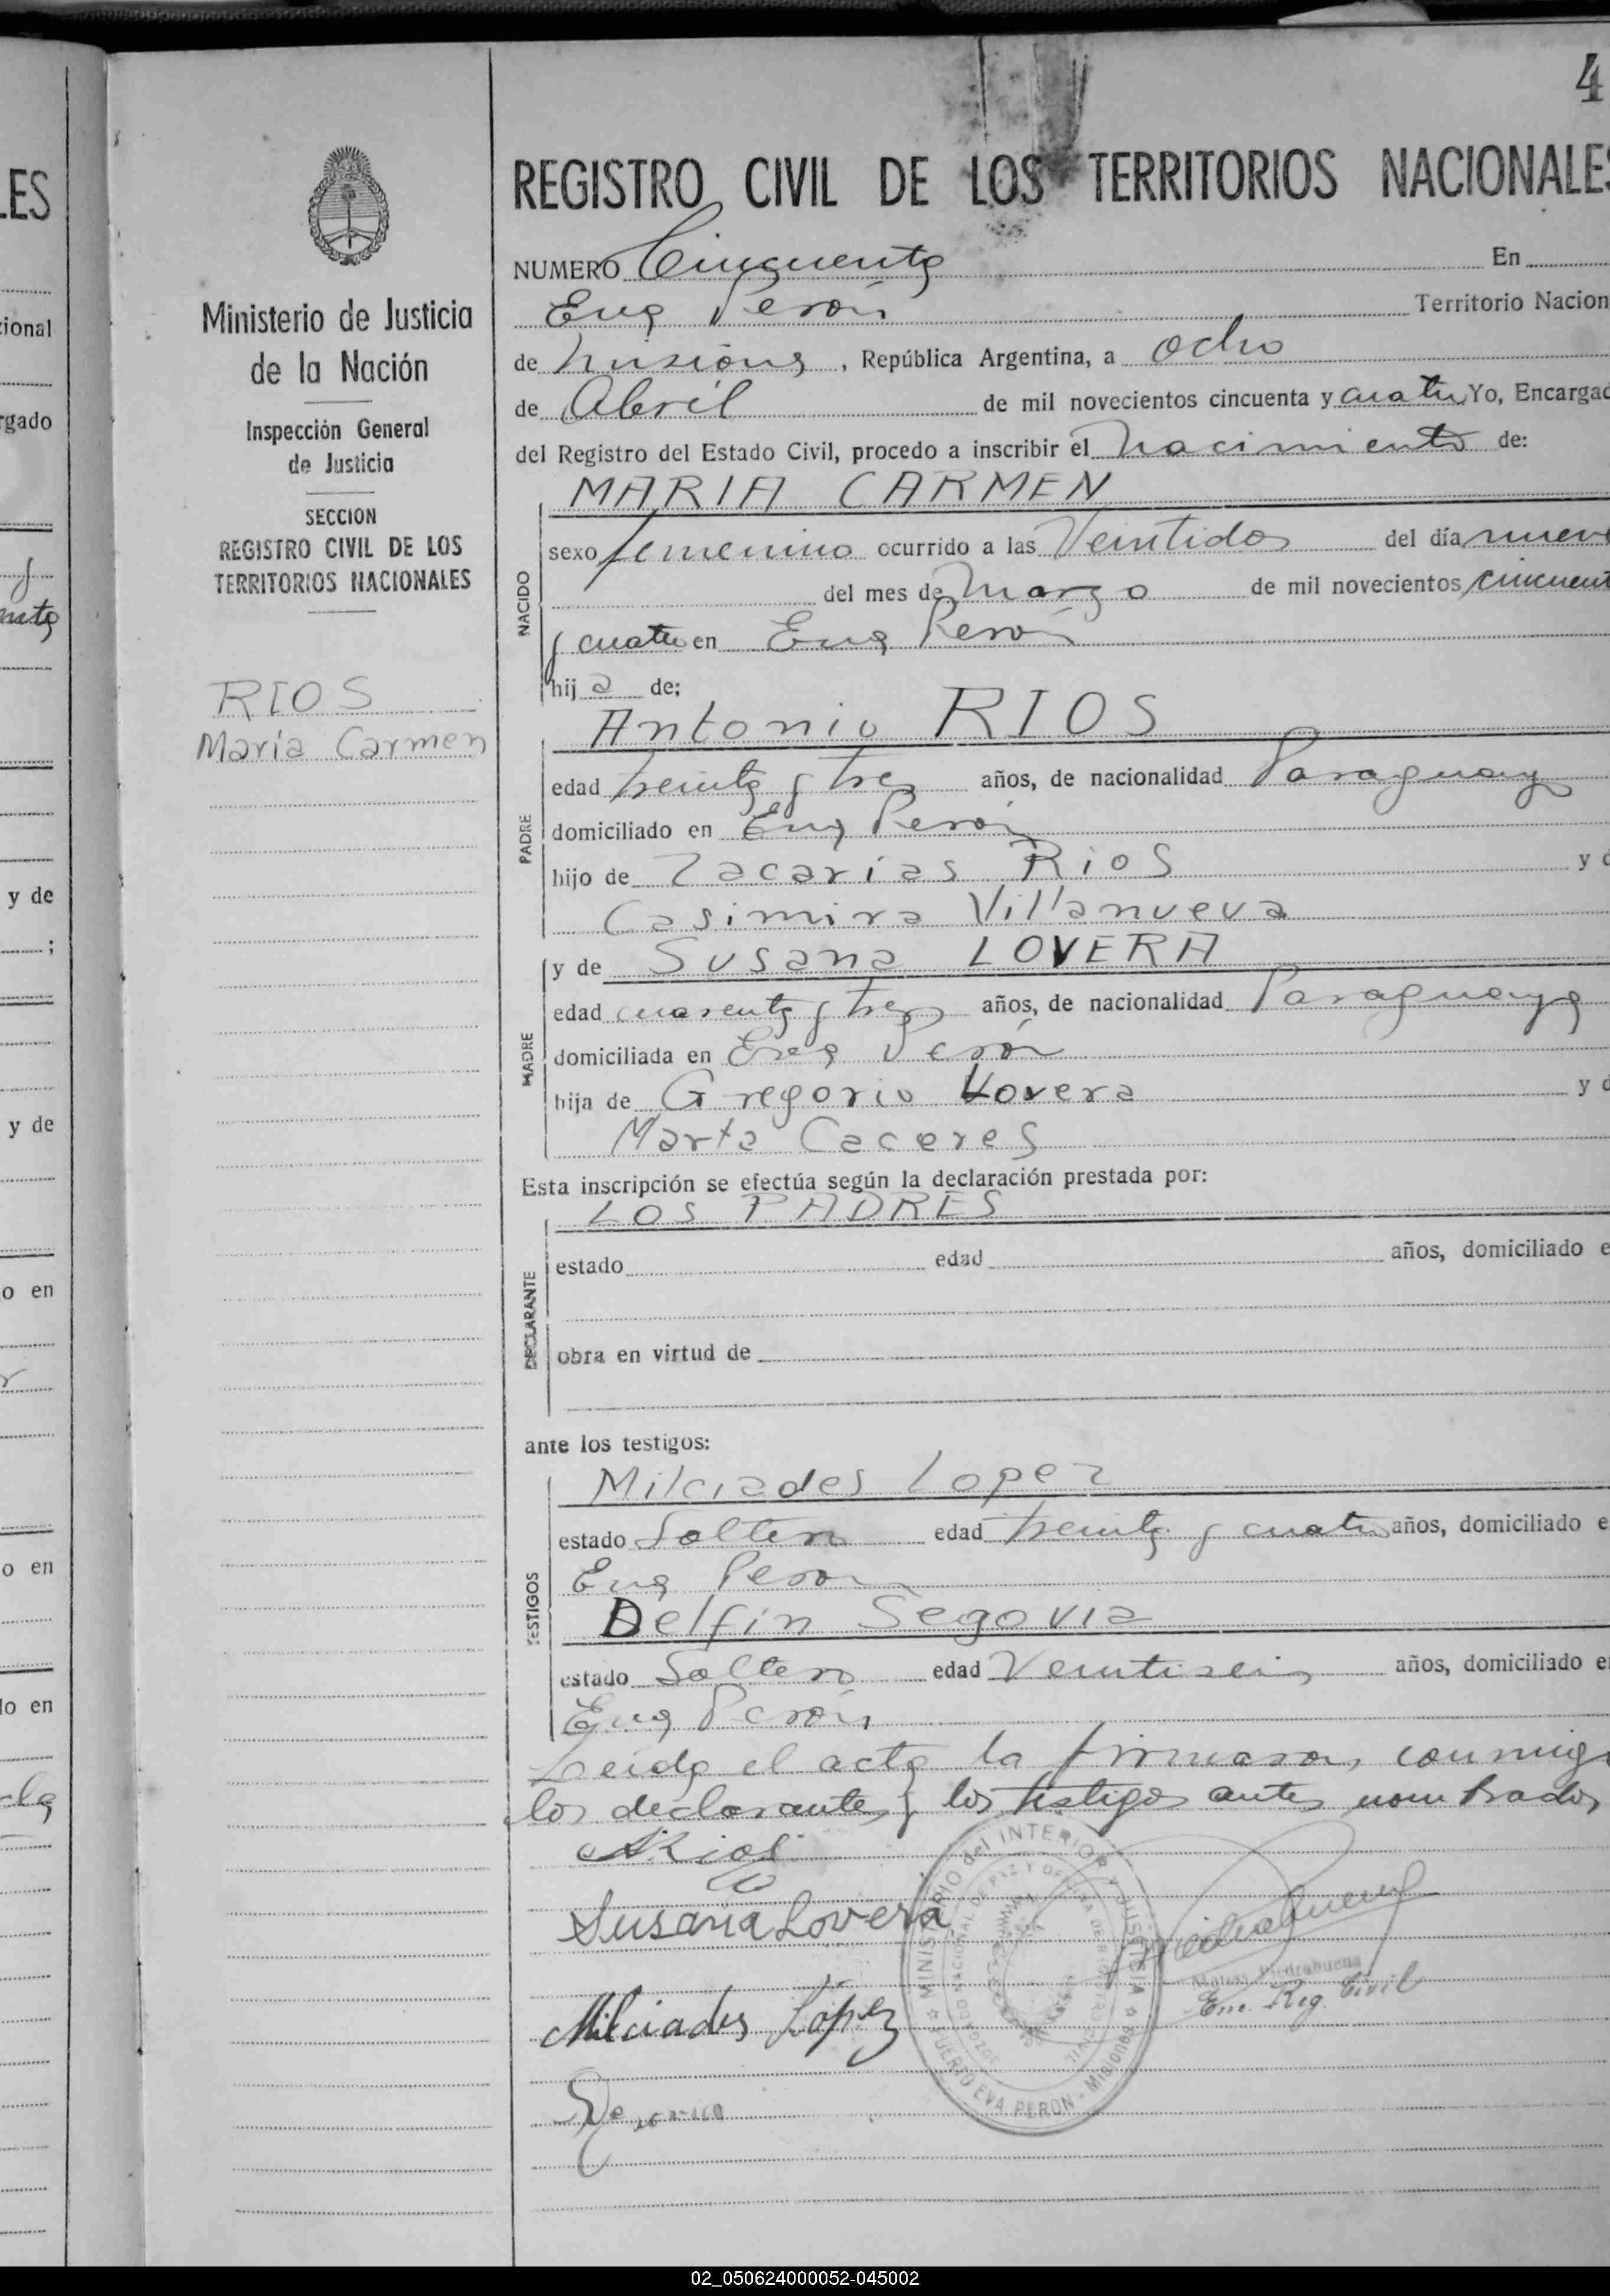 4
REGISTRO CIVIL DE LOS TERRITORIOS NACIONALES
NUMERO Cincuenta En
Eva Perón Territorio Nacion
de Misiones, República Argentina, a ocho
de Abril de mil novecientos cincuenta y cuatro Yo, Encargad
del Registro del Estado Civil, procedo a inscribir el nacimiento de:
NACIDO
MARIA CARMEN
sexo femenino ocurrido a las Veintidos del día nueve
del mes de marzo de mil novecientos cincuent
y cuatro en Eva Perón
hij a de;
PADRE
Antonio RIOS
edad treinta y tres años, de nacionalidad Paraguaya
domiciliado en Eva Perón
hijo de Zacarías Rios y d
Casimira Villanueva
MADRE
y de Susana LOVERA
edad cuarenta y tres años, de nacionalidad Paraguaya
domiciliada en Eva Perón
hija de Gregorio Lovera y d
Marta Caceres
Esta inscripción se efectúa según la declaración prestada por:
DECLARANTE
LOS PADRES
estado edad años, domiciliado e
obra en virtud de
ante los testigos:
TESTIGOS
Milciades Lopez
estado Soltero edad treinta y cuatro años, domiciliado e
Eva Peron
Delfín Segovia
estado Soltero edad Veintiseis años, domiciliado e
Eva Perón
Leida el acta la firmaron, conmigo
los declarantes y los testigos antes nombrados
ARios
Susana Lovera
Milciades López
MINISTERIO del INTERIOR Y JUSTICIA
PUERTO EVA PERON - Misiones
JUZGADO NACIONAL DE PAZ Y OFICINA DE REGISTRO CIVIL
Matias Piedrabuena
Enc. Reg. Civil
Ministerio de Justicia
de la Nación
Inspección General
de Justicia
SECCION
REGISTRO CIVIL DE LOS
TERRITORIOS NACIONALES
RIOS
María Carmen
LES
cional
rgado
y de
;
y de
o en
o en
do en
02_050624000052-045002